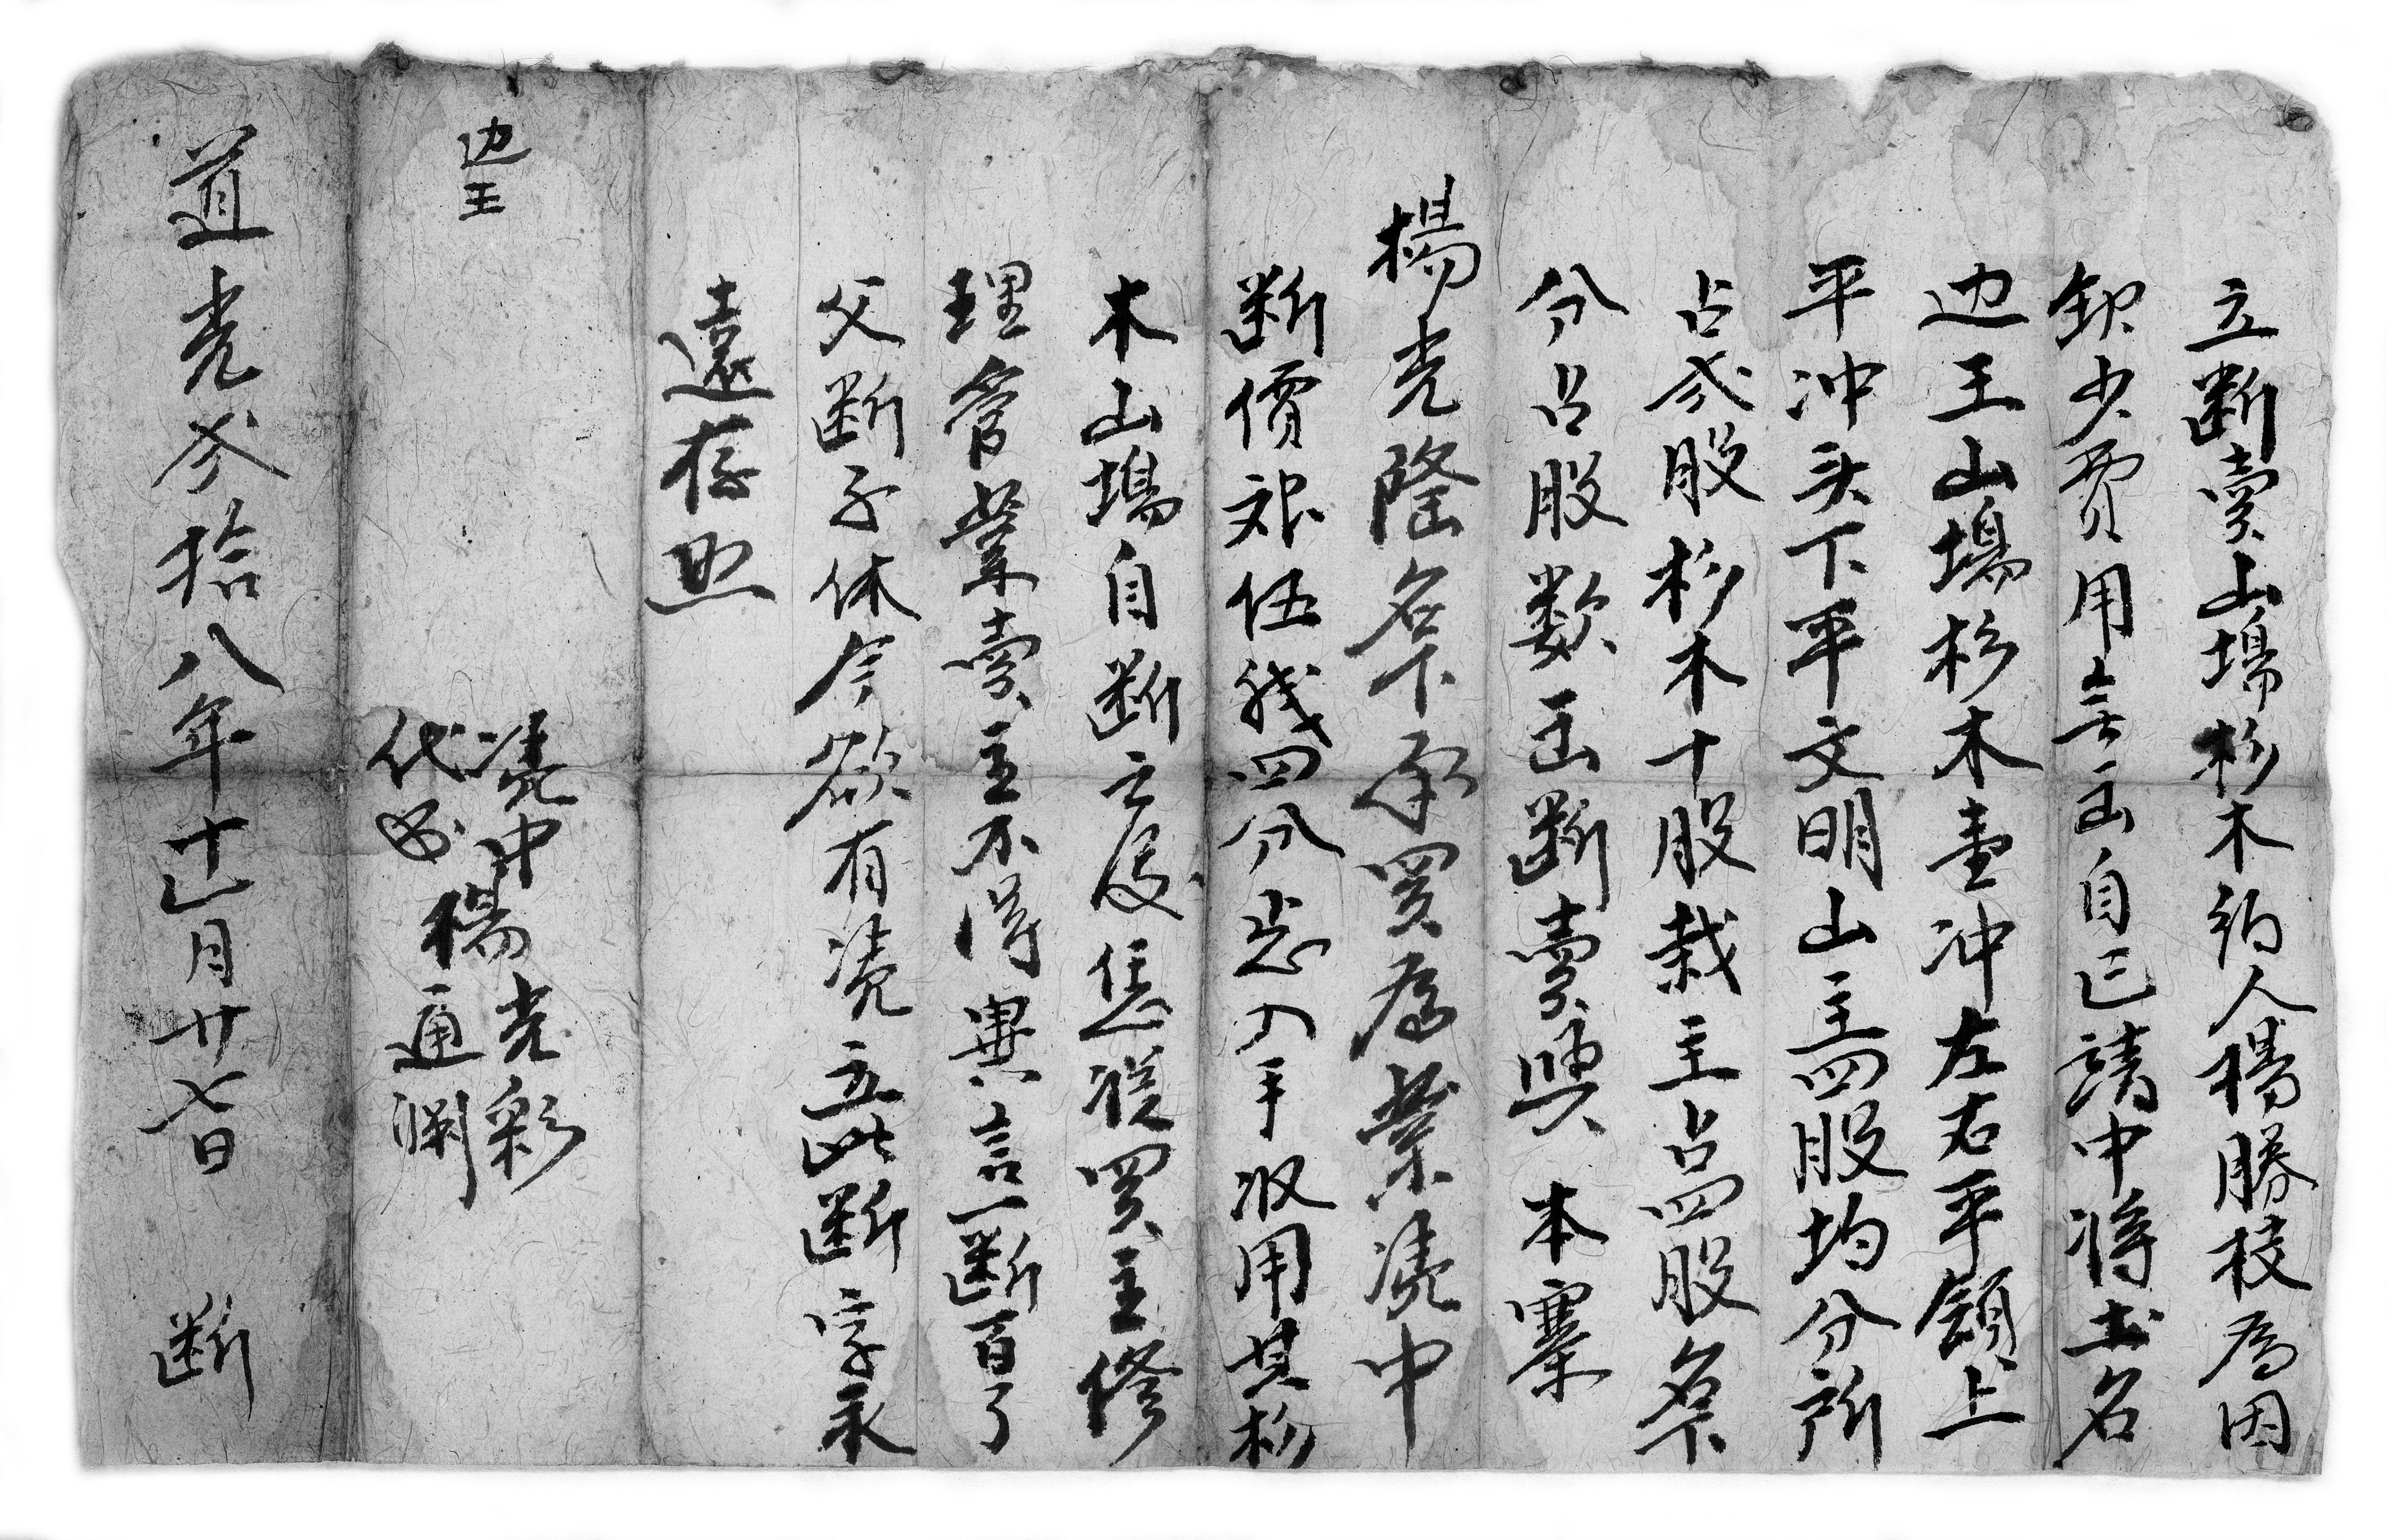 立断賣山塲杉木約人楊勝枝為因
缺少費用無出自己請中将土名
边王山塲杉木壹冲左右平嶺上
平冲头下平文明山主四股均分所
占叁股杉木十股栽主占四股名下
分占股数出断賣與本寨
楊光隆名下承買為業凴中
断價艮伍錢四分悉入手收用其杉
木山塲自断之後任從買主修
理管業賣主不得異言一断百了
父断子休今欲有凴立此断字永
遠存照
凴中楊光彩
代书楊通渊
边王
道光叁拾八年十一月廿七日 断